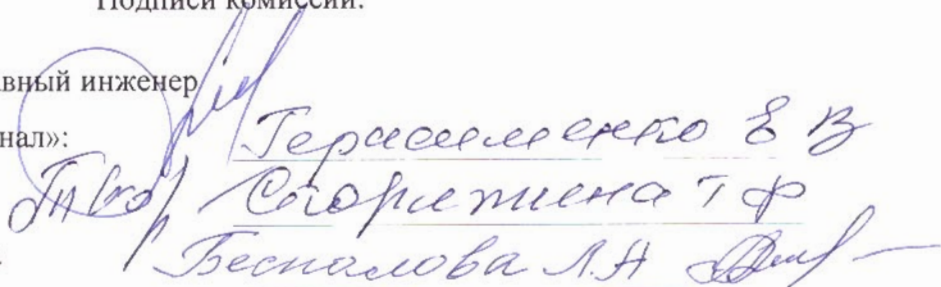 Подписи комиссии:
авный инженер
нал»:
Герасименко Е В
Т Ф
Беспалова Л.А